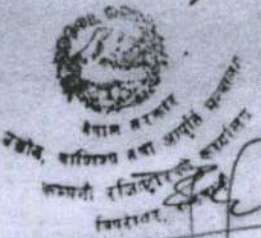 नेपाल सरकार
उद्योग, वाणिज्य तथा आपूर्ति मन्त्रालय
कम्पनी रजिष्ट्रारको कार्यालय
त्रिपुरेश्वर,